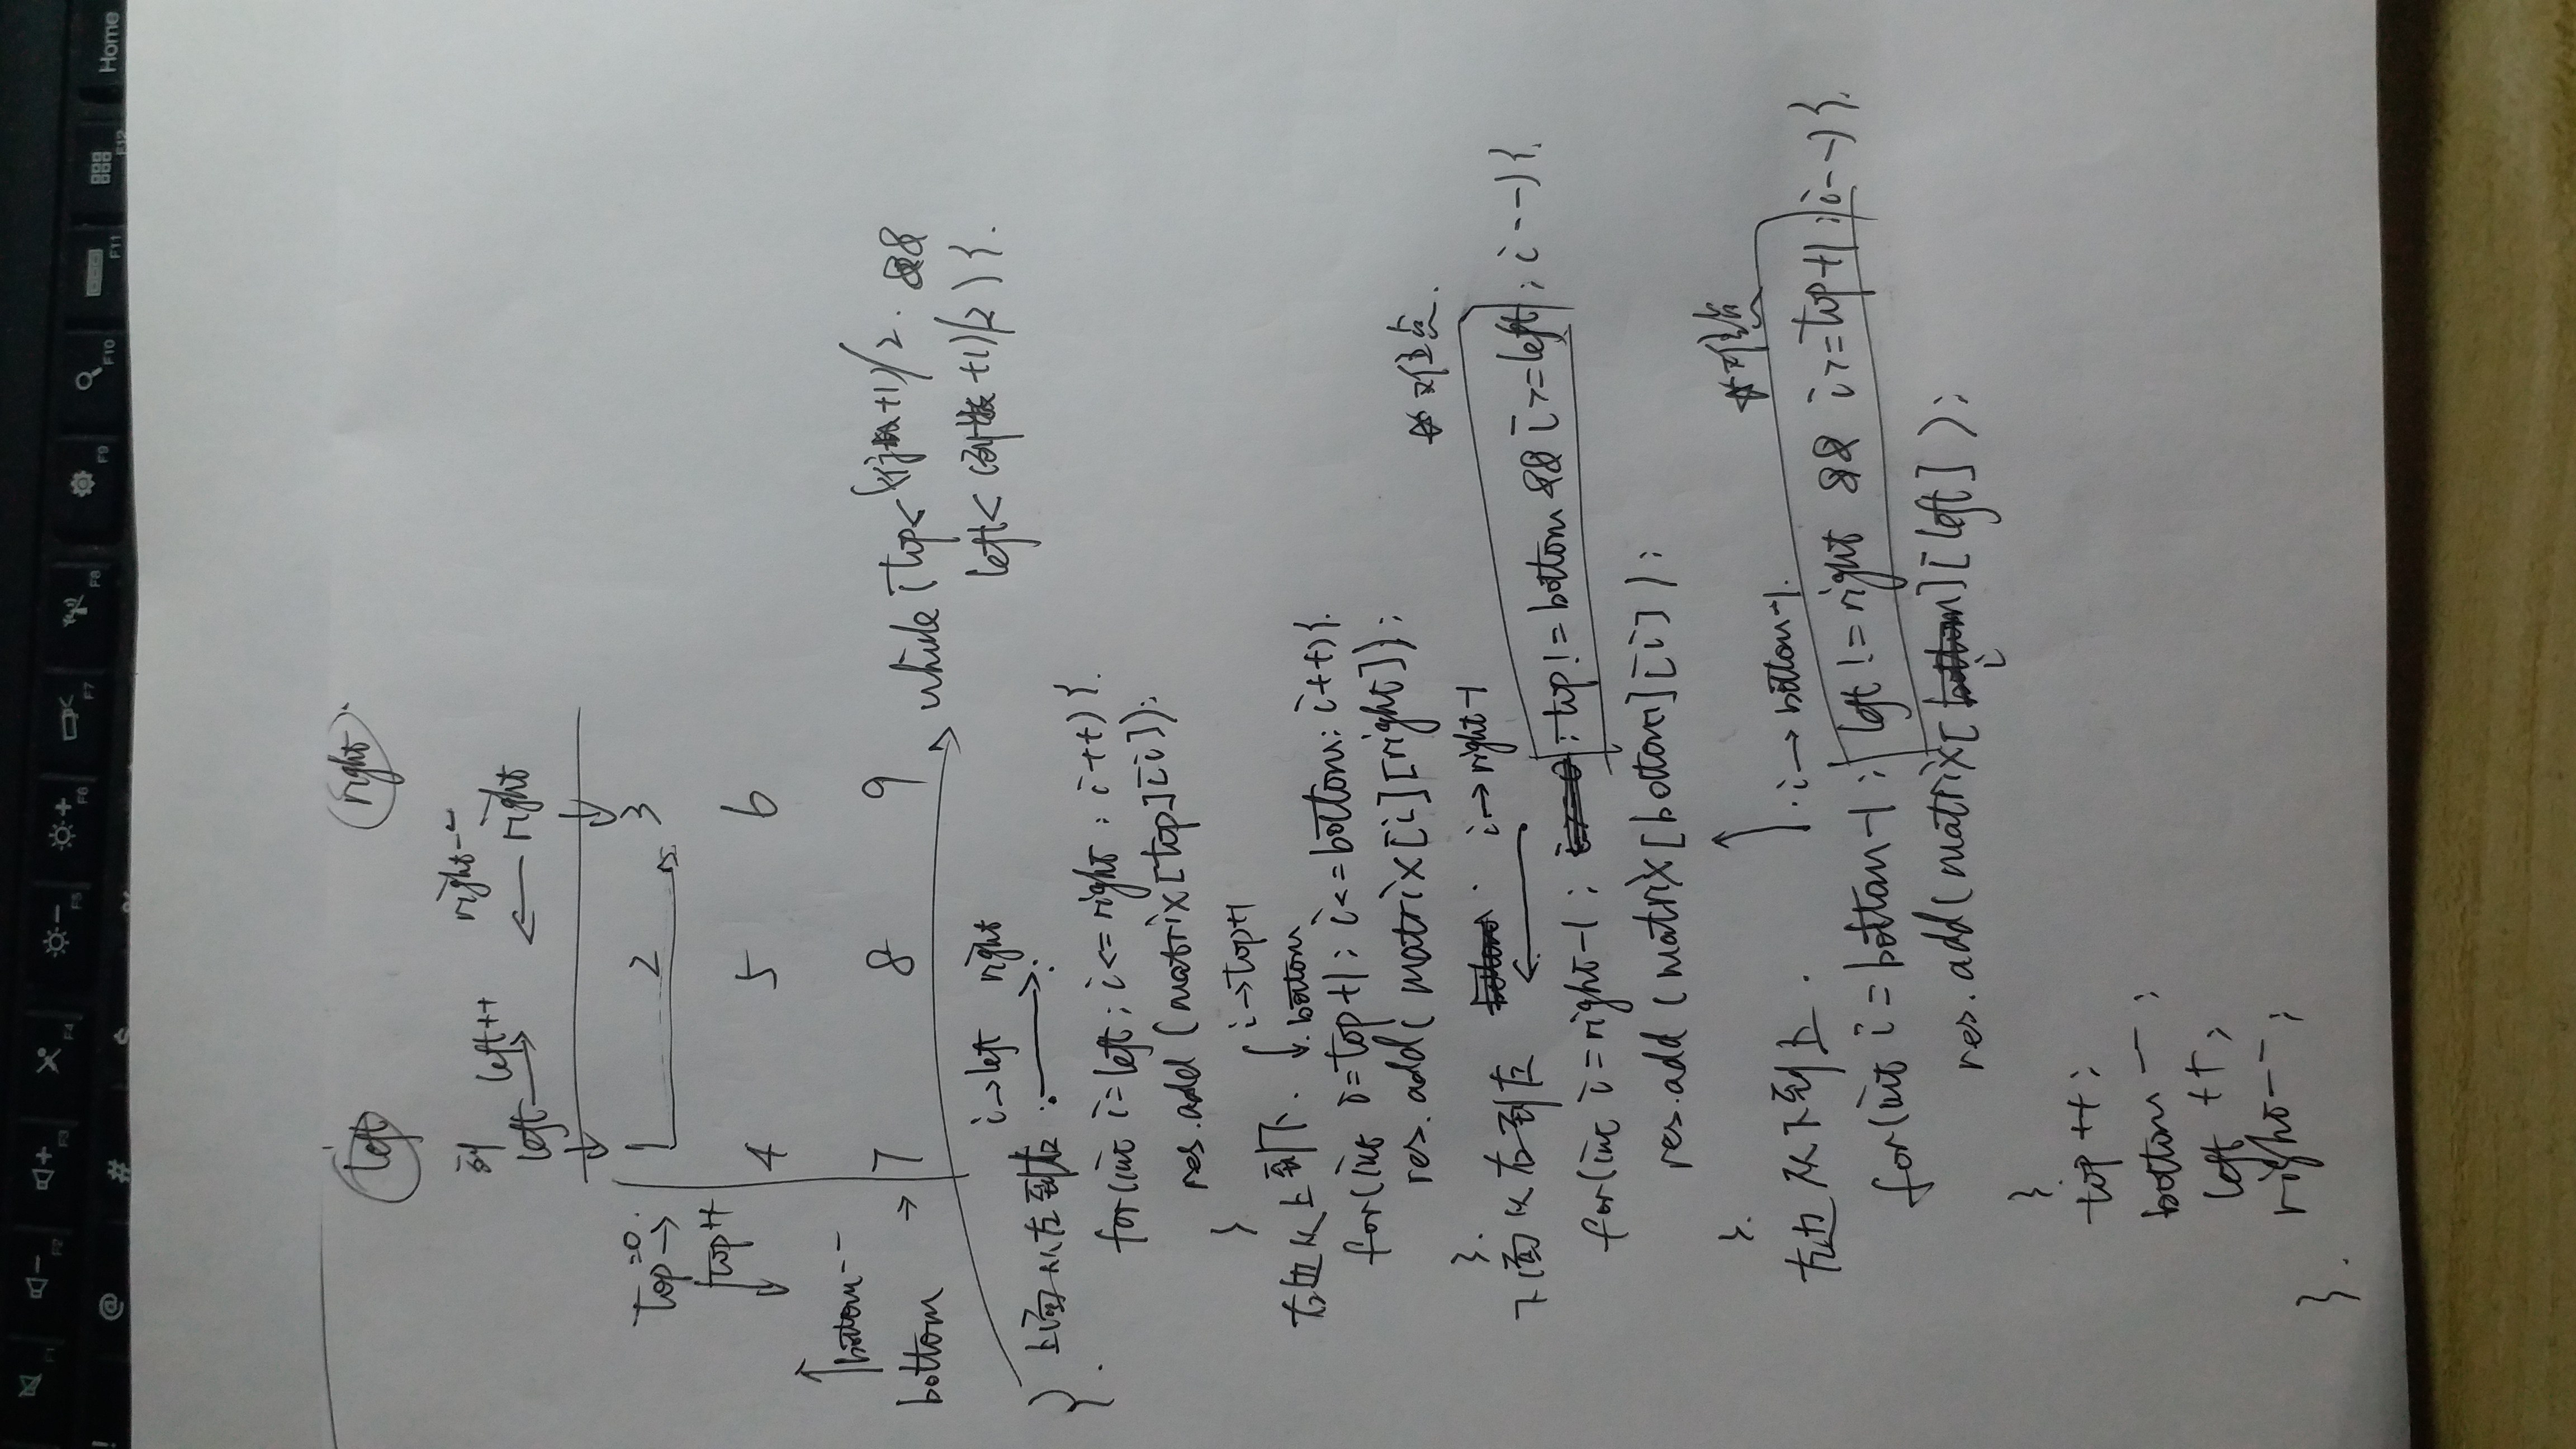 F1 F2 F3 F4 F5 F6 F7 F8 F9 F10 F11 F12 Home
! @ # $ %
left right
列 left++ right--
left right
top=0 1 2 3
top++
4 5 6
bottom--
bottom 7 8 9
while (top<(行数+1)/2 &&
left<(列数+1)/2){
i→left right
上面从左到右
for(int i=left; i<=right; i++){
res.add(matrix[top][i]);
}
i→top+1
右边从上到下. bottom
for(int i=top+1; i<=bottom; i++){
res.add(matrix[i][right]);
☆难点.
}
下面从右到左 i→right-1
for(int i=right-1; top!=bottom && i>=left; i--){
res.add(matrix[bottom][i]);
☆难点
}
左边从下到上. i→bottom-1.
for(int i=bottom-1; left!=right && i>=top+1; i--){
res.add(matrix[i][left]);
}
top++;
bottom--;
left++;
right--;
}